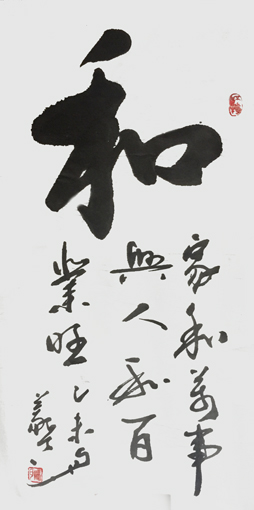 和
家和万事
兴人和百
業旺
乙未